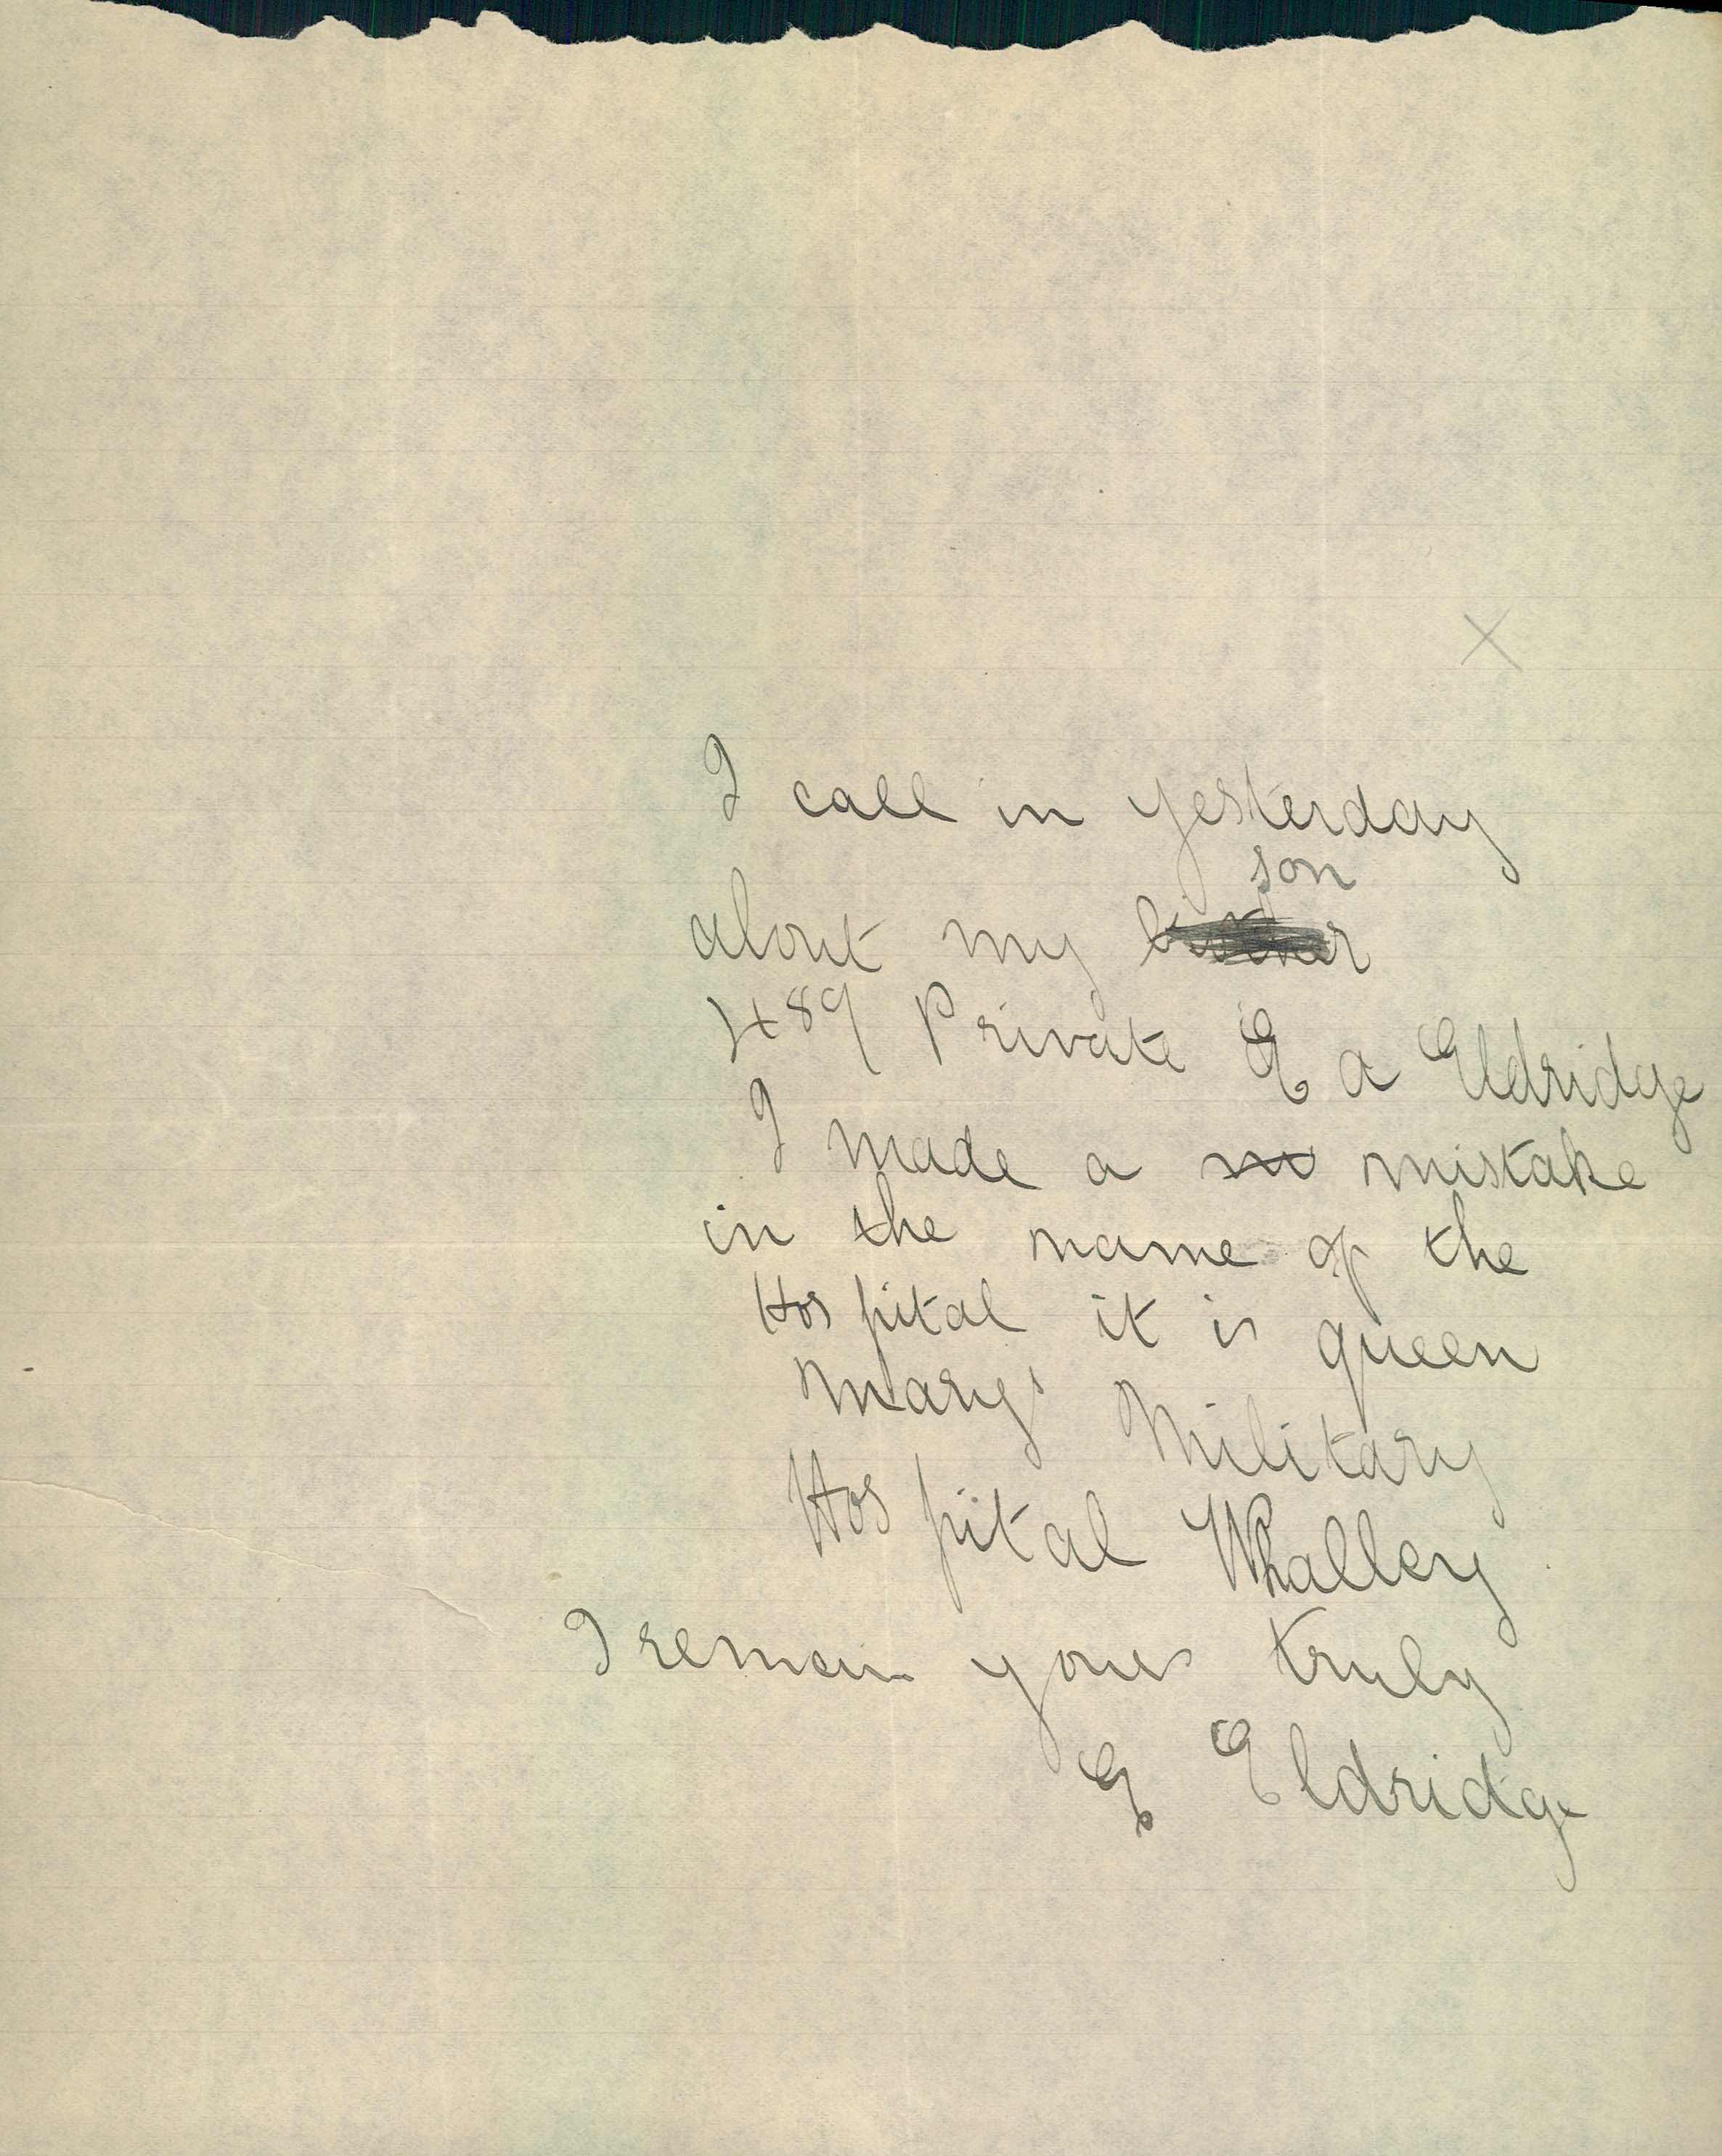 I call in yesterday
son
about my brother
489 Private E a Eldridge
I made a mistake
in the name of the
Hospital it is queen
Marys Military
Hospital Whalley
I remain yours truly
E Eldridge